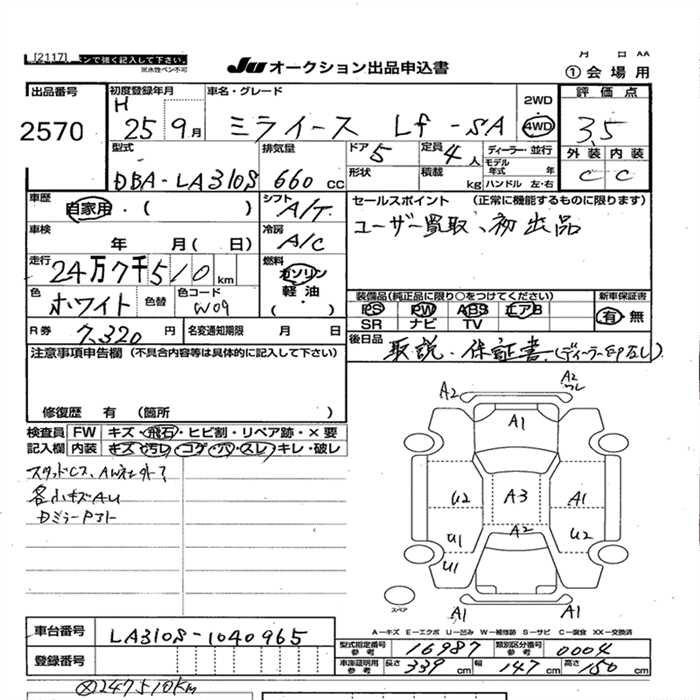 [2117] ペンで強く記入して下さい。
※水性ペン不可
JU オークション出品申込書
月 日 AA
①会場用
出品番号
2570
初度登録年月
H 25 9月
車名・グレード
ミライース Lf -SA
2WD
4WD
評価点
3.5
外装 内装
C C
型式
DBA-LA310S
排気量
660 cc
ドア 5
定員 4人
形状
積載 kg
ディーラー・並行
モデル年式 年
ハンドル 左・右
車歴
自家用・( )
シフト
A/T
セールスポイント (正常に機能するものに限ります)
ユーザー買取、初出品
車検
年 月( 日)
冷房
A/C
走行
24万7千510km
燃料
ガソリン
軽油
・( )
色
ホワイト
色替
色コード
W09
装備品(純正品に限り○をつけてください)
PS PW ABS エアB
SR ナビ TV
新車保証書
有 無
R券 7,320 円
名変通知期限 月 日
後日品
取説・保証書(ディーラー印なし)
注意事項申告欄 (不具合内容等は具体的に記入して下さい)
修復歴 有 (箇所 )
検査員 FW キズ・飛石・ヒビ割・リペア跡・×要
記入欄 内装 キズ・汚レ・コゲ・穴・スレ・キレ・破レ
スタッドCS、AW社外?
各小キズAU
DミラーPコト
A2
A2
ワレ
A1
U2
A3
A1
U1
A2
U2
U1
スペア
A1
A1
A-キズ E-エクボ U-凹み W-補修跡 S-サビ C-腐食 XX-交換済
車台番号
LA310S-1040965
登録番号
型式指定番号
参考
16987
類別区分番号
参考
0004
車庫証明用
参考
長さ 339 cm
幅 147 cm
高さ 150 cm
※247510km